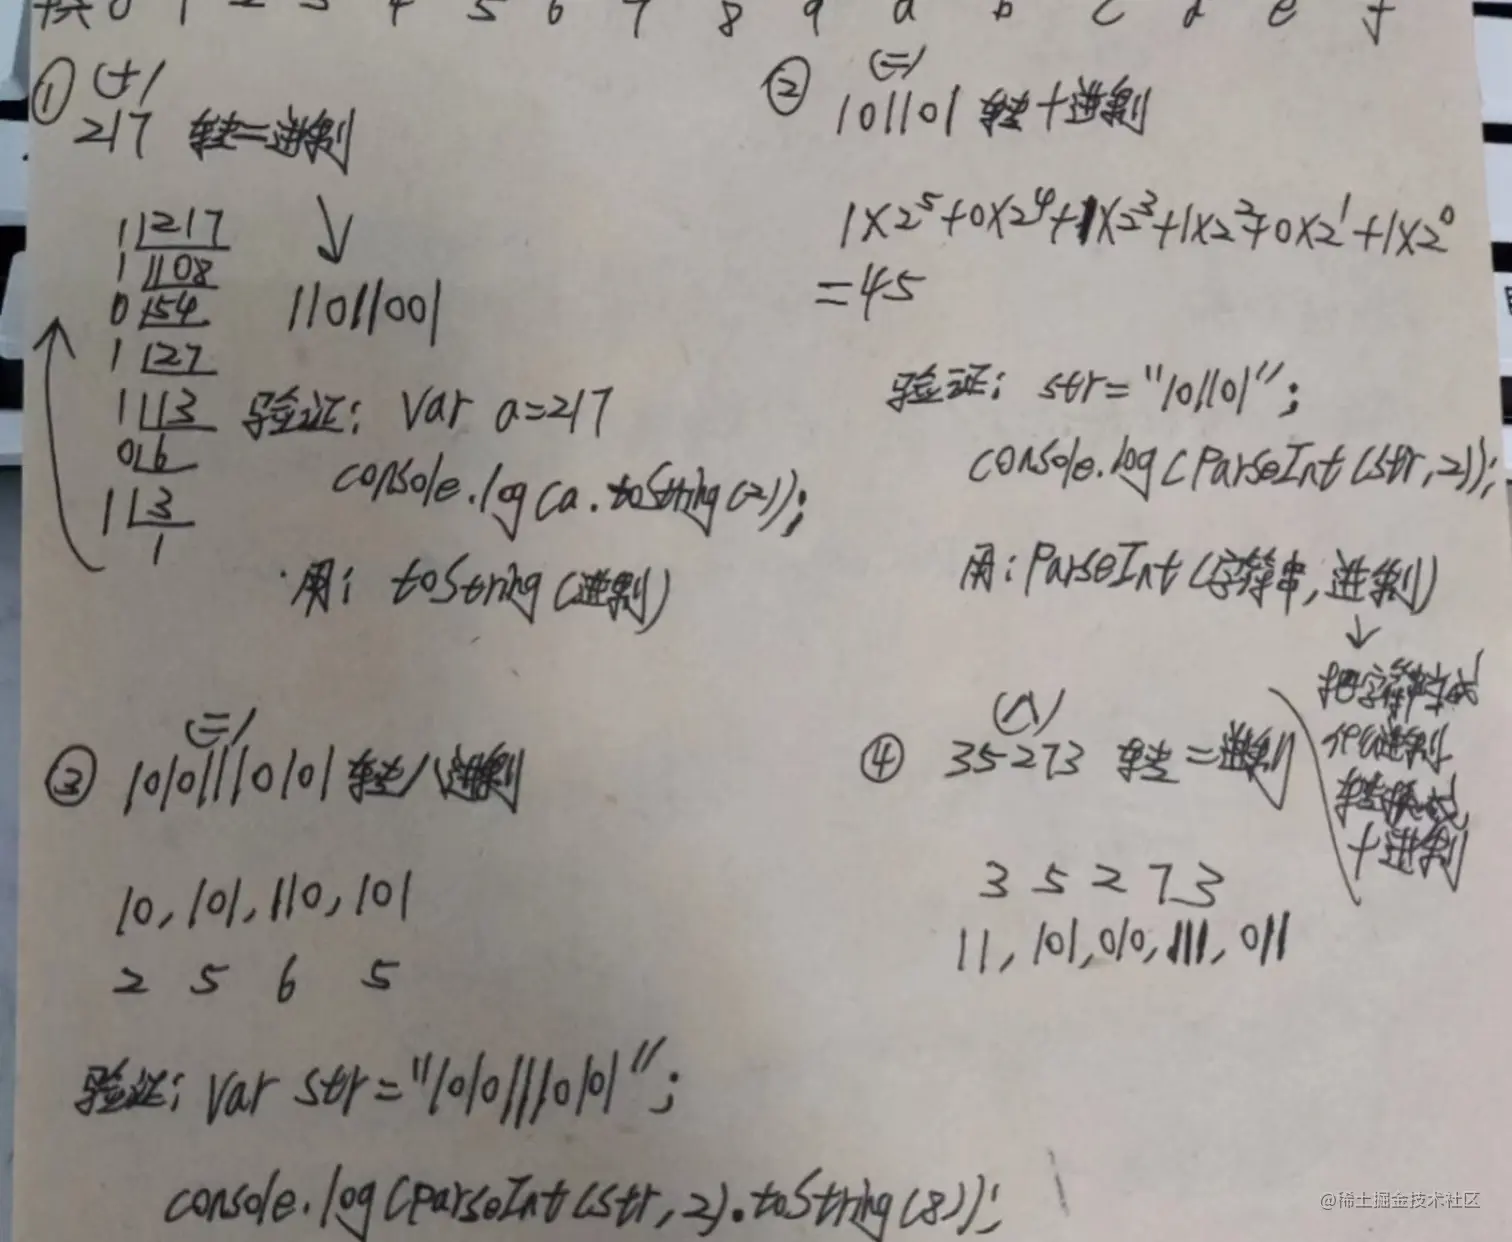 0 1 2 3 4 5 6 7 8 9 a b c d e f
① (十)
217 转二进制
1 217
1 108
0 54
1 27
1 13
0 6
1 3
1
11011001
验证: var a=217
console.log(a.toString(2));
用: toString(进制)
② (二)
101101 转十进制
1×2⁵+0×2⁴+1×2³+1×2²+0×2¹+1×2⁰
=45
验证: str="101101";
console.log(ParseInt(str,2));
用: ParseInt(字符串,进制)
↓
把字符串转成
进制
转换成
十进制
③ (二)
10101110101 转八进制
10,101,110,101
2 5 6 5
验证: var str="10101110101";
console.log(parseInt(str,2).toString(8));
④ (八)
35273 转二进制
3 5 2 7 3
11,101,010,111,011
@稀土掘金技术社区